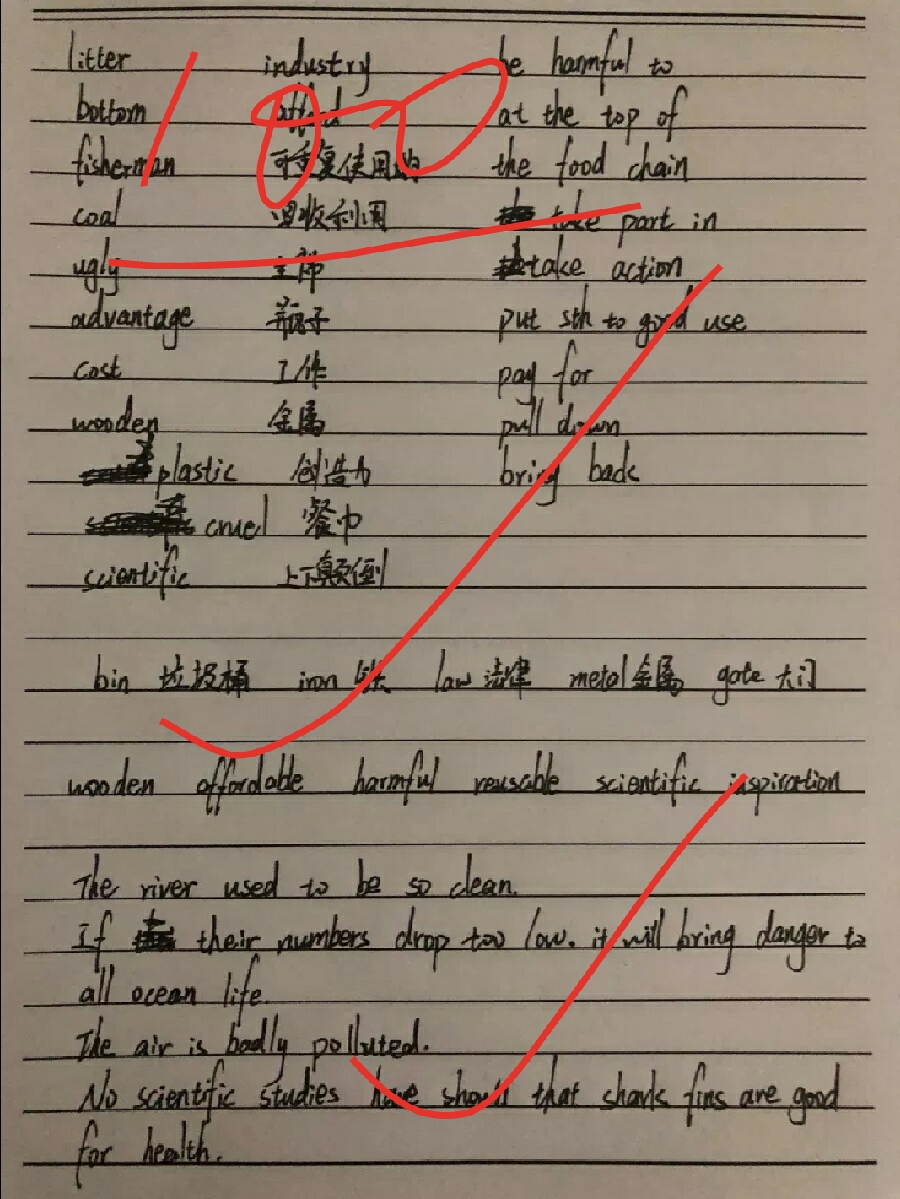 litter industry be harmful to
bottom afford at the top of
fisherman 可重复使用的 the food chain
coal 回收利用 take part in
ugly 全部 take action
advantage 瓶子 put sth to good use
cost 工作 pay for
wooden 金属 pull down
plastic 创造力 bring back
cruel 餐巾
scientific 上下颠倒
bin 垃圾桶 iron 铁 law 法律 metal 金属 gate 大门
wooden affordable harmful reusable scientific inspiration
The river used to be so clean.
If their numbers drop too low. it will bring danger to
all ocean life.
The air is badly polluted.
No scientific studies have shown that shark fins are good
for health.